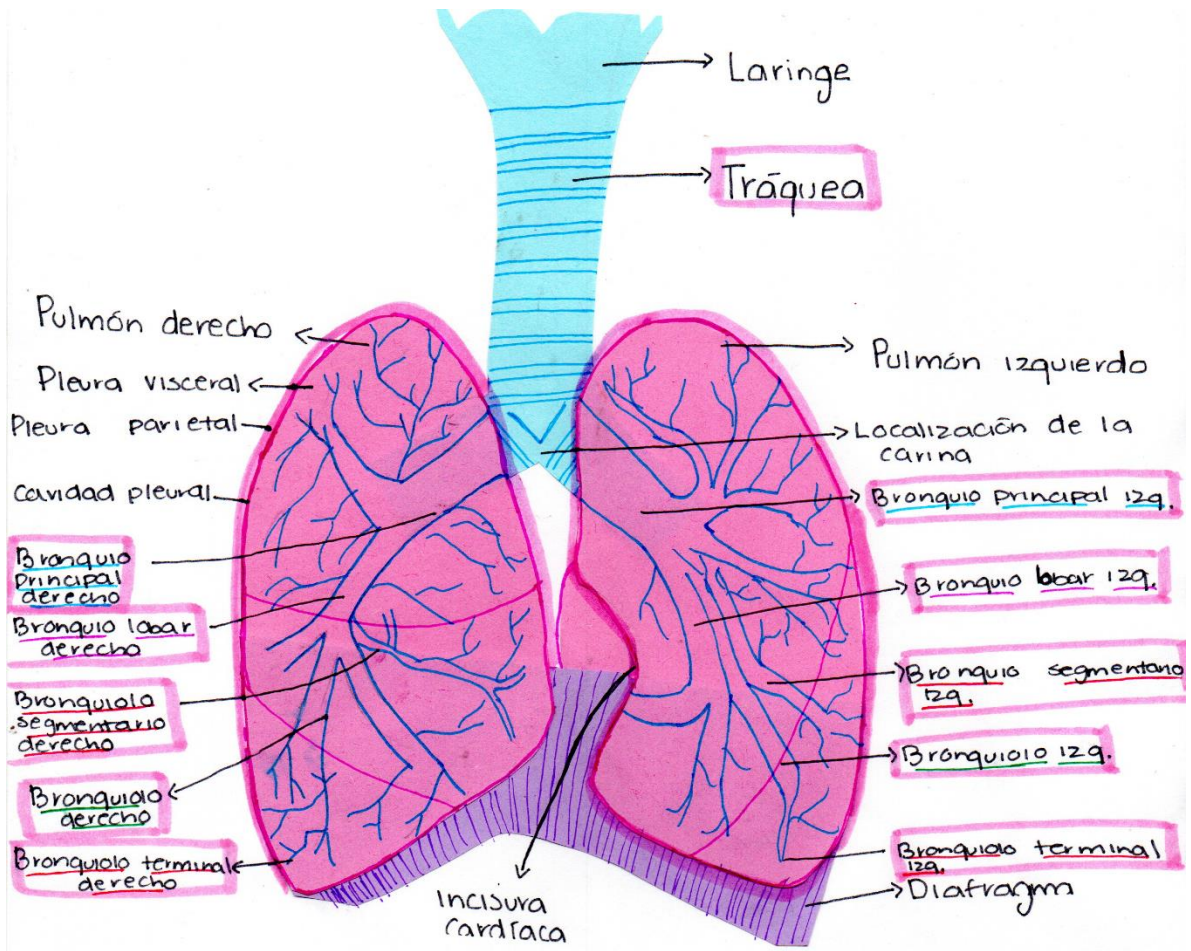 Laringe
Tráquea
Pulmón derecho
Pleura visceral
Pleura parietal
cavidad pleural
Bronquio
principal
derecho
Bronquio lobar
derecho
Bronquiolo
segmentario
derecho
Bronquiolo
derecho
Bronquiolo terminal
derecho
Pulmón izquierdo
Localización de la
carina
Bronquio principal izq.
Bronquio lobar izq.
Bronquio segmentario
izq.
Bronquiolo izq.
Bronquiolo terminal
izq.
Diafragma
Incisura
Cardíaca